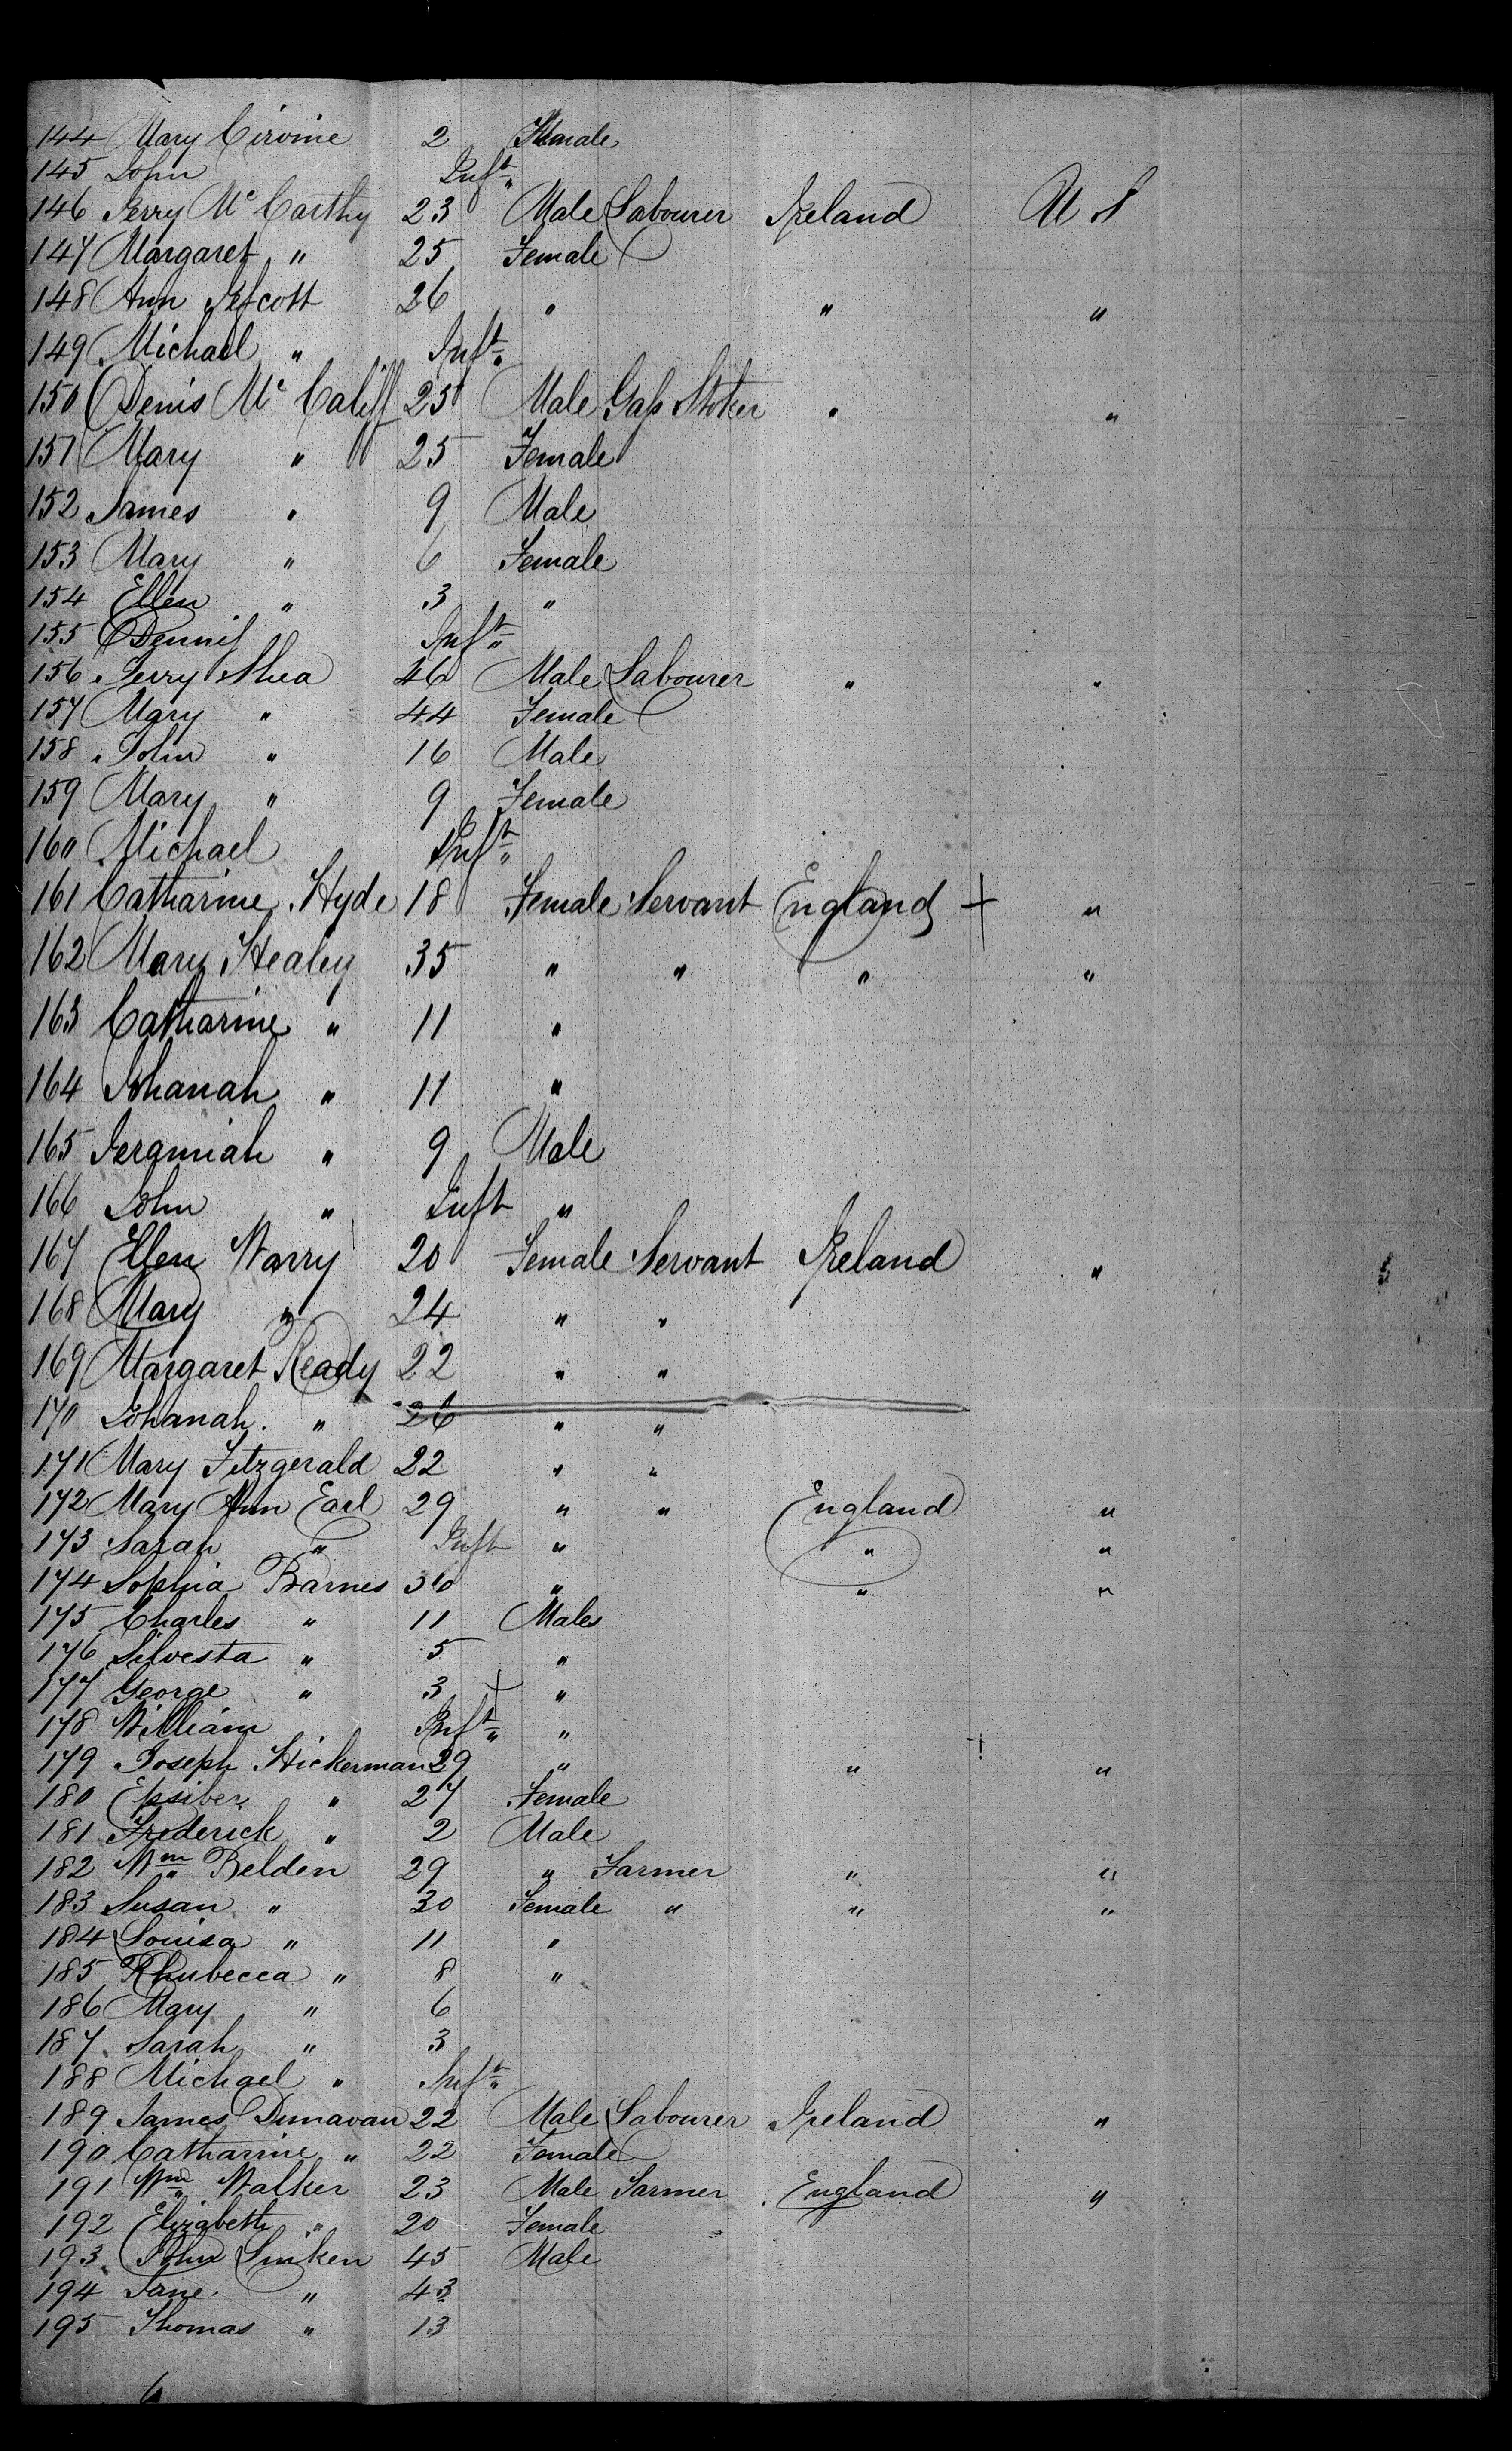 144 Mary Cirvine 2 Female
145 John Inft "
146 Jerry Mc Carthy 23 Male Labourer Ireland U S
147 Margaret " 25 Female
148 Ann 26 " " "
149 Michael " Inft "
150 Denis Mc Califf 25 Male Gass Stoker " "
151 Mary " 25 Female
152 James " 9 Male
153 Mary " 6 Female
154 Ellen " 3 "
155 Dennis Inft "
156 Jerry Shea 46 Male Labourer " "
157 Mary " 44 Female
158 John " 16 Male
159 Mary " 9 Female
160 Michael Inft "
161 Catharine Hyde 18 Female Servant England + "
162 Mary Healey 35 " " " "
163 Catharine " 11 "
164 Johanah " 11 "
165 Jeramiah " 9 Male
166 John " Inft "
167 Ellen Warry 20 Female Servant Ireland "
168 Mary " 24 " "
169 Margaret Ready 22 " "
170 Johanah " 26 " "
171 Mary Fitzgerald 22 " "
172 Mary Ann Earl 29 " " England "
173 Sarah " Inft " " "
174 Sophia Barnes 36 " " "
175 Charles " 11 Males
176 Silvesta " 5 "
177 George " 3 + "
178 William Inft " "
179 Joseph Hickerman 29 " " + "
180 Epsiber " 27 Female
181 Frederick " 2 Male
182 Wm Belden 29 " Farmer " "
183 Susan " 30 Female " " "
184 Louisa " 11 "
185 Rhubecca " 8 "
186 Mary " 6
187 Sarah " 3
188 Michael " Inft "
189 James Dunavan 22 Male Labourer Ireland "
190 Catharine " 22 Female
191 Wm Walker 23 Male Farmer England "
192 Elizabeth " 20 Female
193 John 45 Male
194 Jane " 43
195 Thomas " 13